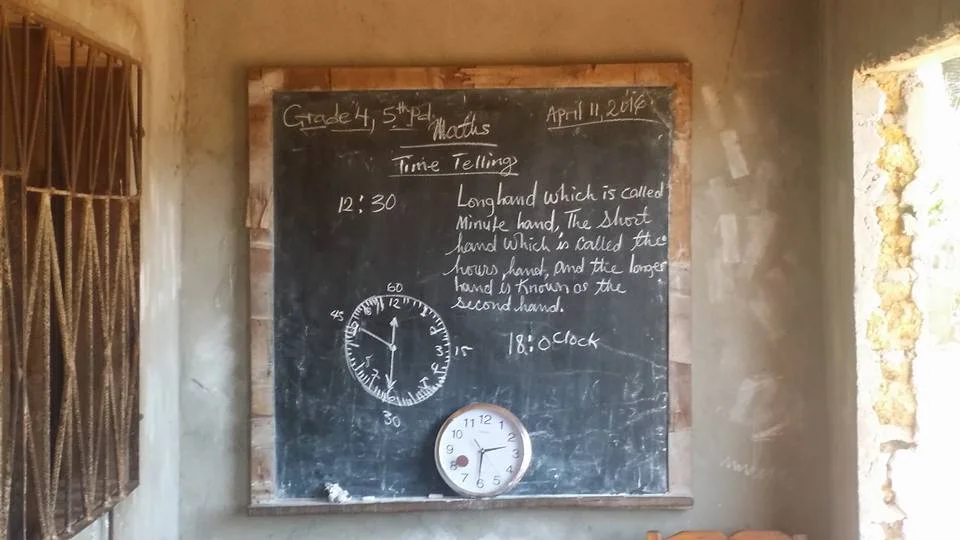 Grade 4, 5th Pd.
April 11, 2014
Maths
Time Telling
12:30
Long hand which is called
Minute hand, The short
hand which is called the
hours hand, and the longer
hand is known as the
second hand.
18:0 Clock
60
45
15
30
12 1 2 3 4 5 6 7 8
12 1 2 3 4 5 6 7 8 9 10 11